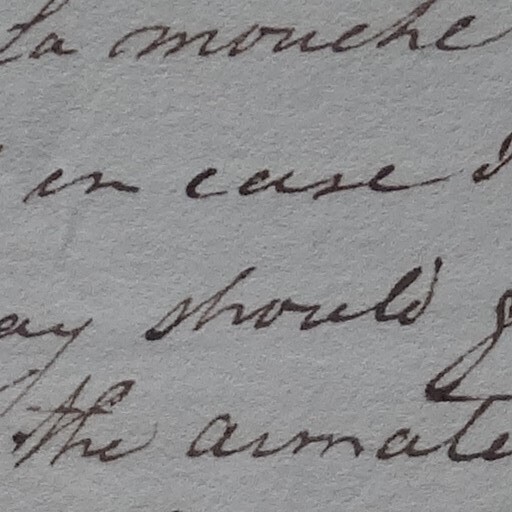 La mouche
in case
ay should
the armate